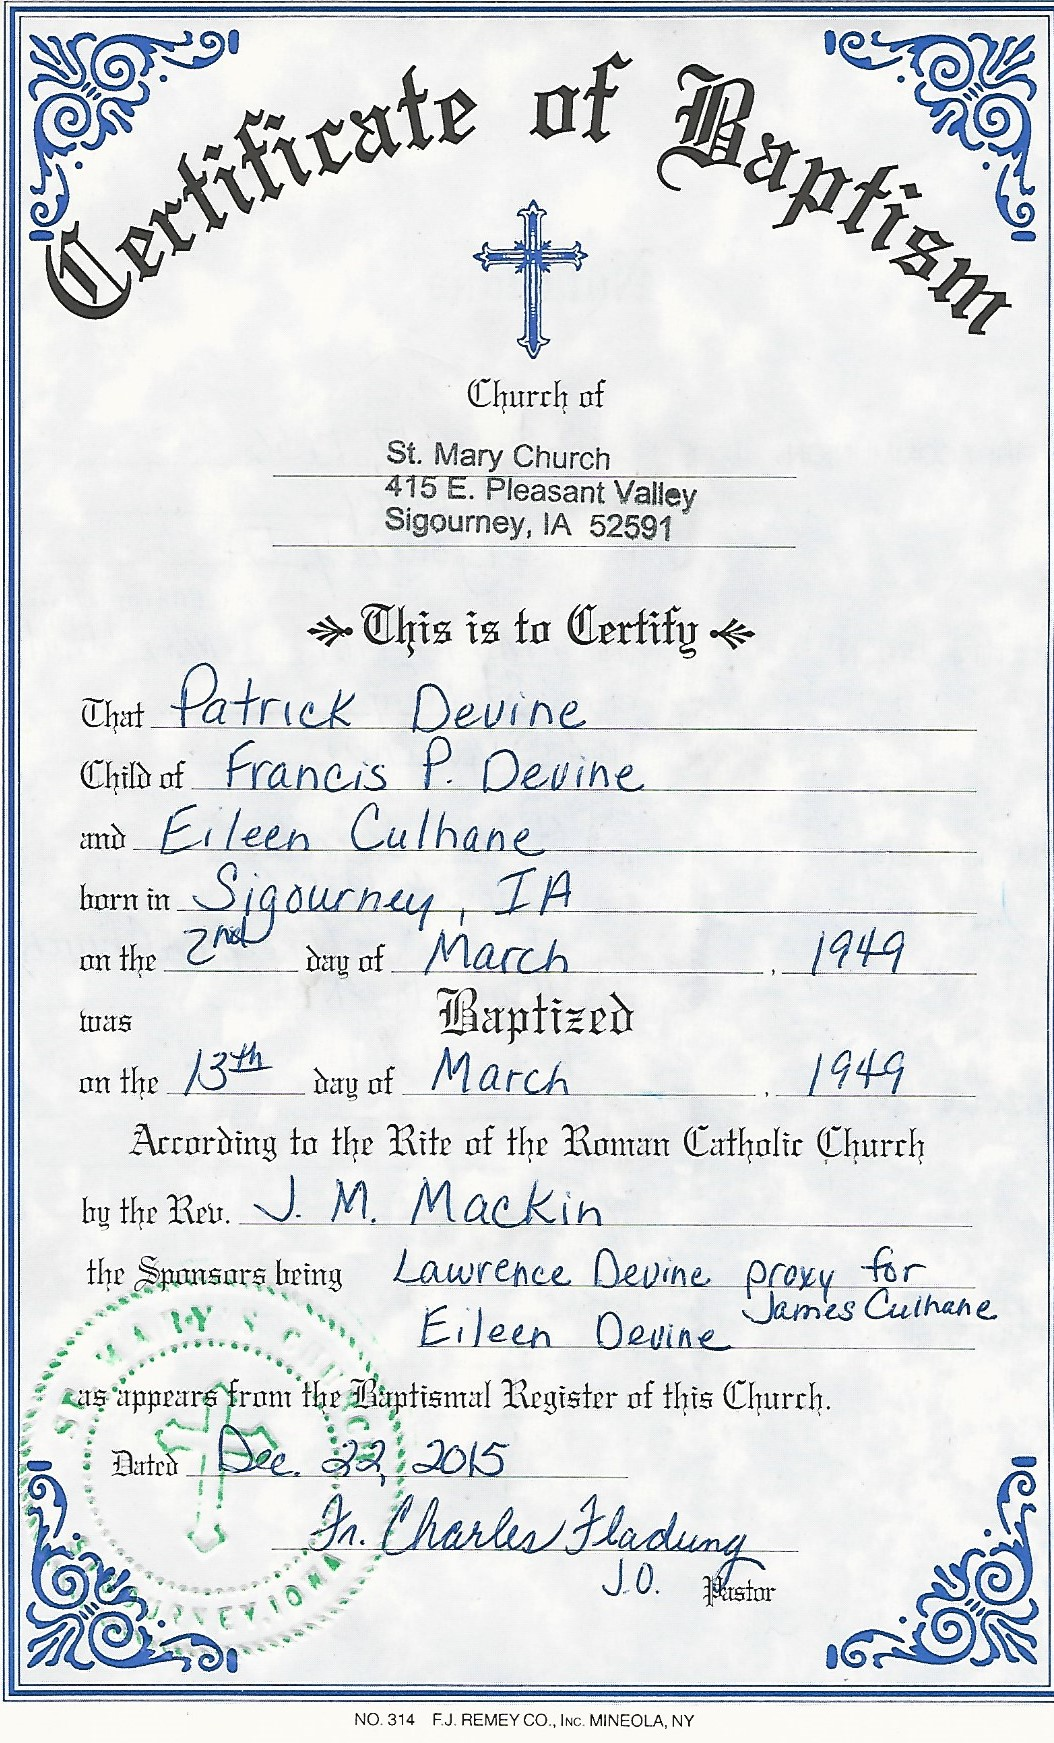 Certificate of Baptism
Church of
St. Mary Church
415 E. Pleasant Valley
Sigourney, IA 52591
This is to Certify
That Patrick Devine
Child of Francis P. Devine
and Eileen Culhane
born in Sigourney, IA
on the 2nd day of March, 1949
was Baptized
on the 13th day of March, 1949
According to the Rite of the Roman Catholic Church
by the Rev. J. M. Mackin
the Sponsors being Lawrence Devine proxy for
James Culhane
Eileen Devine
as appears from the Baptismal Register of this Church.
Dated Dec. 22, 2015
Fr. Charles Fladung
J.O. Pastor
ST. MARY'S CHURCH
SIGOURNEY, IOWA
NO. 314 F.J. REMEY CO., INC. MINEOLA, NY